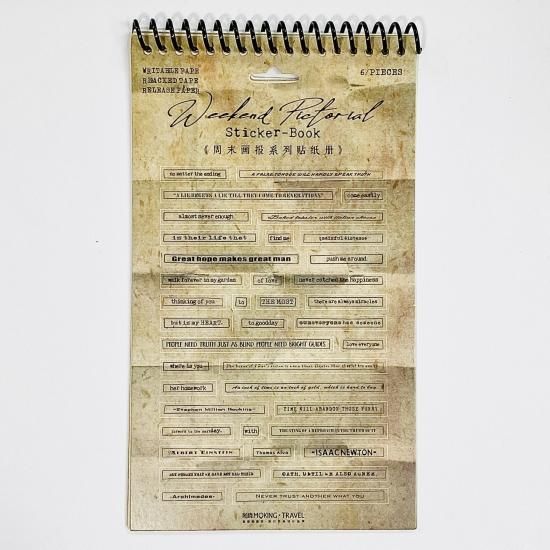 WRITABLE PAPE
REBACKED TAPE
RELEASE PAPER
6/PIECES
Weekend Pictorial
Sticker-Book
《周末画报系列贴纸册》
no matter the ending
A FALSE TONGUE WILL HARDLY SPEAK TRUTH
"A LIE BEGETS A LIE TILL THEY COME TO GENERATIONS."
come easily
almost never enough
is their life that
find me
Great hope makes great man
push me around
walk forever in my garden
of love
never catched the happiness
thinking of you
to
THE MOST
there are always miracles
but is my HEART.
to goodday
our everyone has someone
PEOPLE NEED TRUTH JUST AS BLIND PEOPLE NEED BRIGHT GUIDES
love everyone
where is you
her homework
An inch of time is an inch of gold, which is hard to buy
-Stephen William Hawking-
TIME WILL ABANDON THOSE FURRY
with
THE STING OF A REPROACH IS THE TRUTH OF IT
ALBERT EINSTEIN
Thomas Alva
-ISAAC NEWTON-
-Archimedes-
NEVER TRUST ANOTHER WHAT YOU
MOKING·TRAVEL